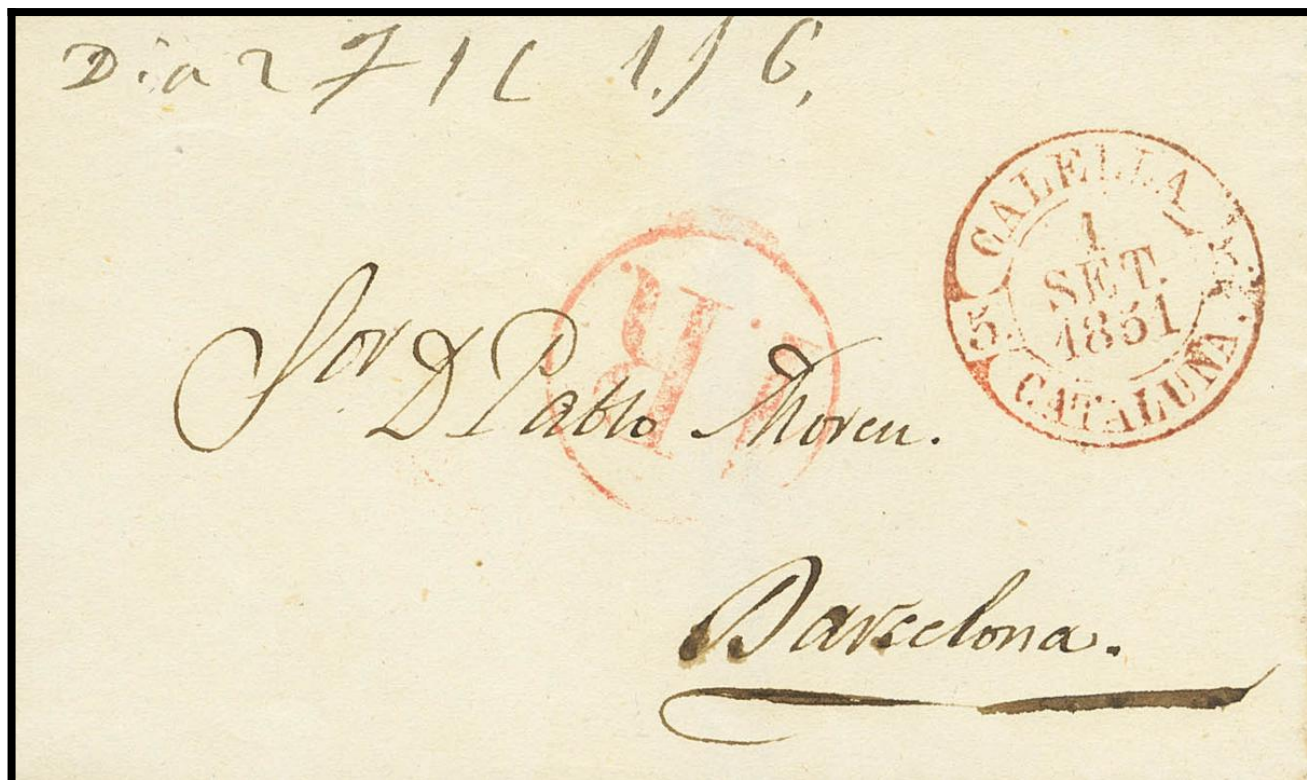 Dia 2
CALELLA
1
SET.
1851
5
CATALUNA.
R
Sor D Pablo Moreu.
Barcelona.